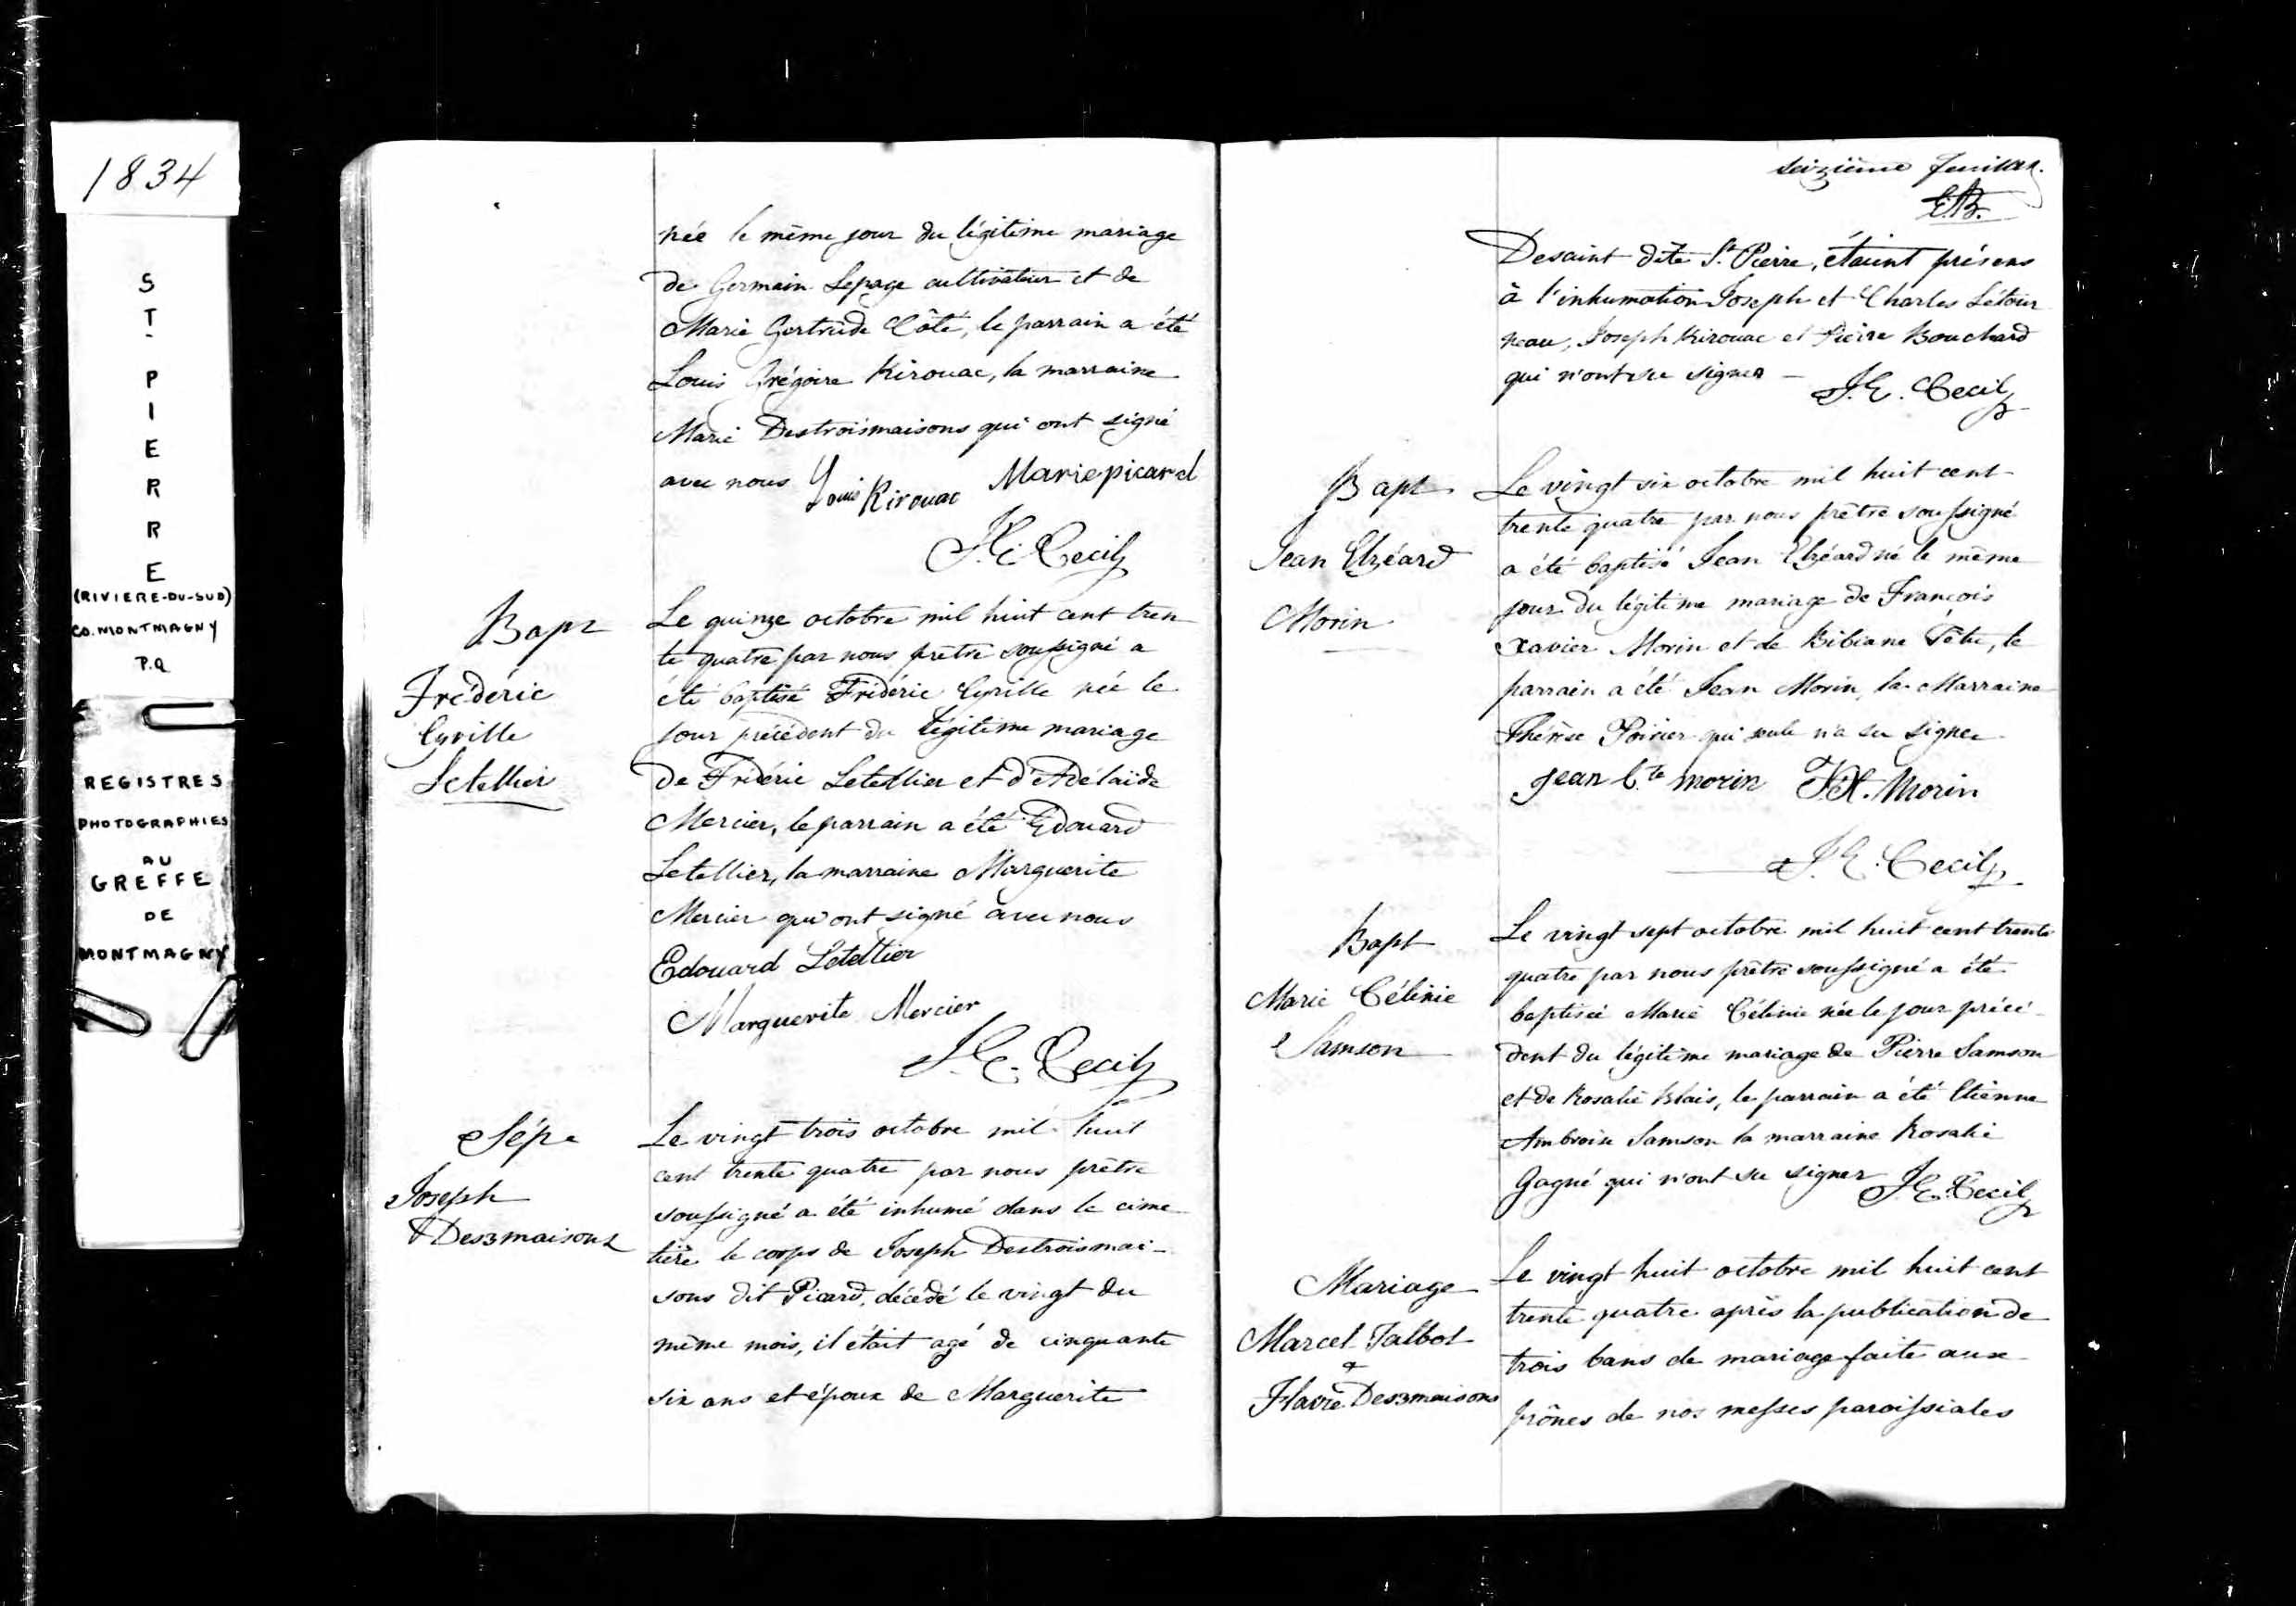 1834
ST-PIERRE
(RIVIERE-DU-SUD)
CO. MONTMAGNY
P.Q
REGISTRES
PHOTOGRAPHIES
AU
GREFFE
DE
MONTMAGNY
née le même jour du légitime mariage
de Germain Lepage cultivateur et de
Marie Gertrude Côté, le parrain a été
Louis Grégoire Kirouac, la marraine
Marie Destroismaisons qui ont signé
avec nous Louis Kirouac Marie picard
J. E. Cecil
Bapt
Frédéric
Cyrille
Letellier
Le quinze octobre mil huit cent tren
te quatre par nous prêtre soussigné a
été baptisé Frédéric Cyrille née le
jour précédent du légitime mariage
de Frédéric Letellier et d'Adélaïde
Mercier, le parrain a été Edouard
Letellier, la marraine Marguerite
Mercier qui ont signé avec nous
Edouard Letellier
Marguerite Mercier
J. E. Cecil
Sép
Joseph
Des3maisons
Le vingt trois octobre mil huit
cent trente quatre par nous prêtre
soussigné a été inhumé dans le cime
tière le corps de Joseph Destroismai-
sons dit Picard, décédé le vingt du
même mois, il était agé de cinquante
six ans et époux de Marguerite
seizième feuillet.
E.B.
Desaint dite St. Pierre, étaient présens
à l'inhumation Joseph et Charles Létour
neau, Joseph Kirouac et Pierre Bouchard
qui n'ont su signer — J. E. Cecil
Bapt
Jean Elzéard
Morin
Le vingt six octobre mil huit cent
trente quatre par nous prêtre soussigné
a été baptisé Jean Elzéard né le même
jour du légitime mariage de François
Xavier Morin et de Bibiane Têtu, le
parrain a été Jean Morin, la Marraine
Thérèse Poirier qui seule n'a su signer
Jean Bte morin F. X. Morin
J. E. Cecil
Bapt
Marie Célinie
Samson
Le vingt sept octobre mil huit cent trente
quatre par nous prêtre soussigné a été
baptisée Marie Célinie née le jour précé-
dent du légitime mariage de Pierre Samson
et de Rosalie Blais, le parrain a été Etienne
Ambroise Samson la marraine Rosalie
Gagné qui n'ont su signer J. E. Cecil
Mariage
Marcel Talbot
&
Flavie Des3maisons
Le vingt huit octobre mil huit cent
trente quatre après la publication de
trois bans de mariage faite aux
prônes de nos messes paroissiales